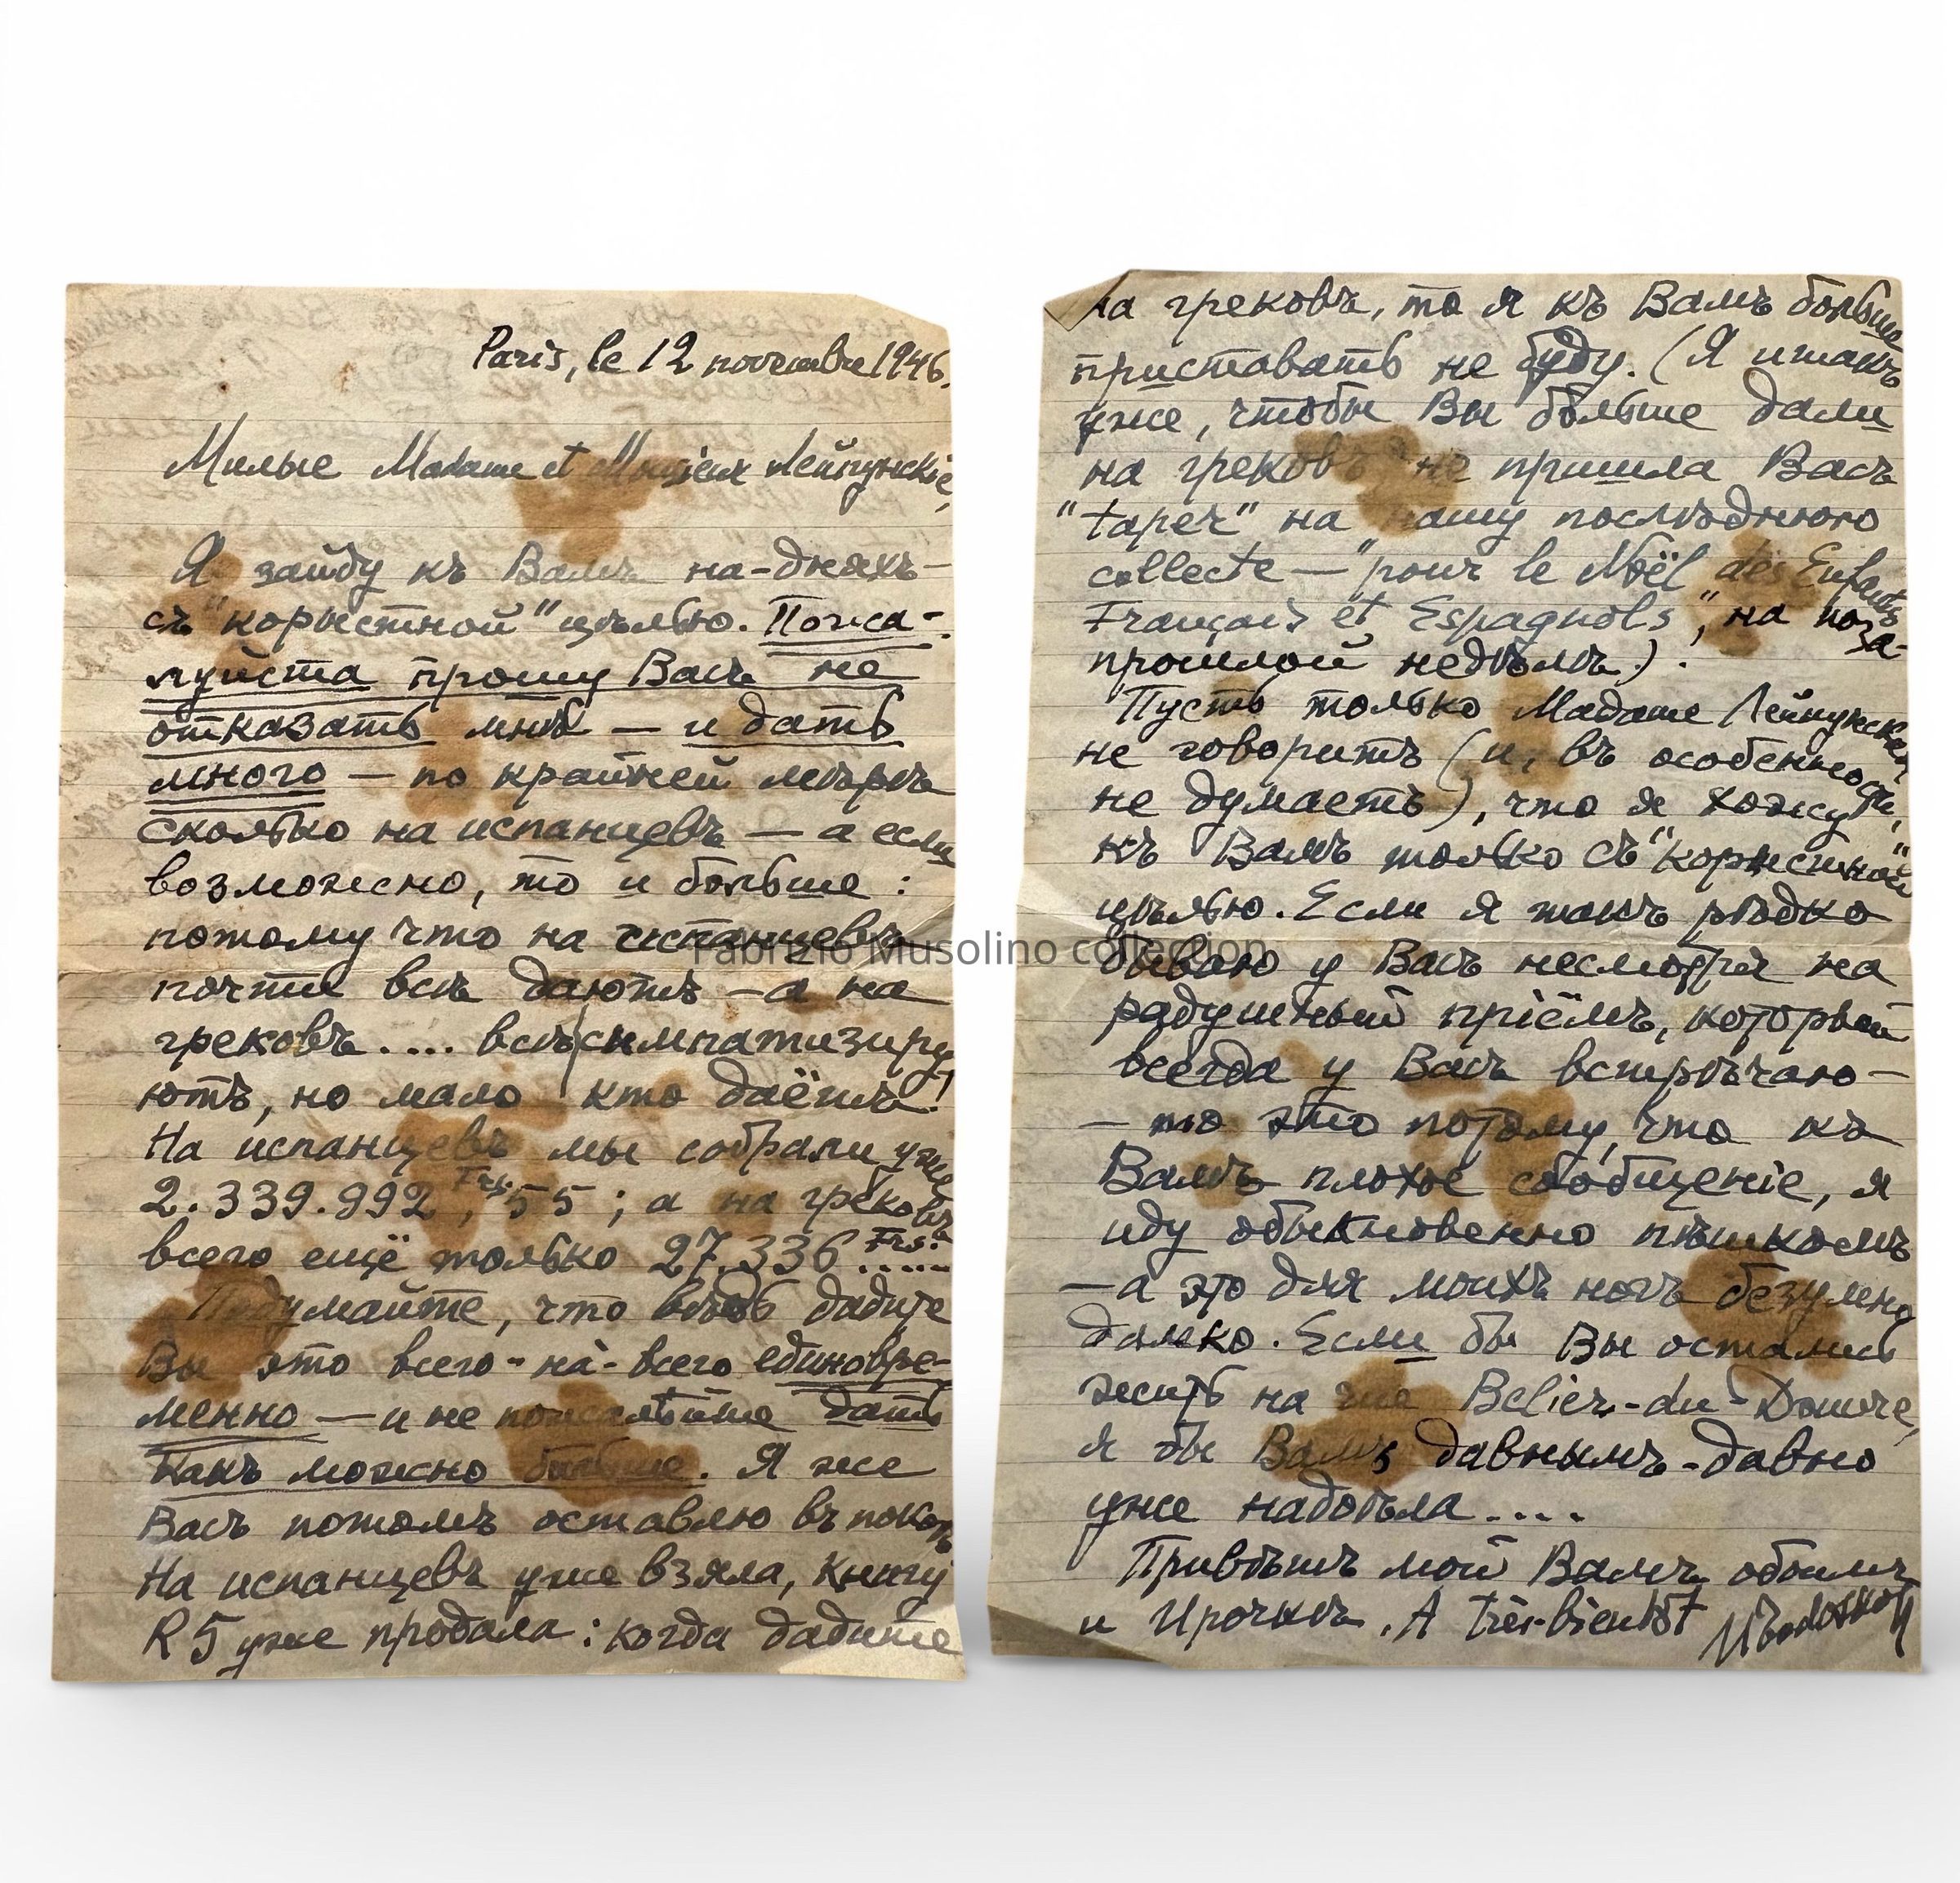 Paris, le 12 novembre 1946.
Милые Madame et Monsieur Лейпунскіе,
Я зайду къ Вамъ на-дняхъ –
съ "корыстной" цѣлью. Пожа-
луйста прошу Васъ не
отказать мнѣ — и дать
много — по крайней мѣрѣ
сколько на испанцевъ — а если
возможно, то и больше :
потому что на испанцевъ
почти всѣ даютъ – а на
грековъ.... всѣ симпатизиру
ютъ, но мало кто даётъ!
На испанцевъ мы собрали уже
2.339.992 Frs, 55 ; а на грековъ
всего ещё только 27.336 Frs.....
Подумайте, что вѣдь дадите
Вы это всего-на-всего единовре-
менно — и не пожалѣйте дать
какъ можно больше. Я же
Васъ потомъ оставлю въ покоѣ
На испанцевъ уже взяла, книгу
R 5 уже продала : когда дадите
на грековъ, то я къ Вамъ больше
приставать не буду. (Я итакъ
уже, чтобы Вы больше дали
на грековъ не пришла Васъ
"taper" на нашу послѣднюю
collecte — "pour le Noël des Enfants
Français et Espagnols", на поза-
прошлой недѣлѣ).
Пусть только Madame Лейпунская
не говоритъ (и, въ особенности,
не думаетъ), что я хожу
къ Вамъ только съ "корыстной"
цѣлью. Если я такъ рѣдко
бываю у Васъ несмотря на
радушный пріёмъ, который
всегда у Васъ встрѣчаю –
– то это потому, что къ
Вамъ плохое сообщеніе, я
иду обыкновенно пѣшкомъ
— а это для моихъ ногъ безумно
далеко. Если бы Вы остались
жить на rue Belier-du-Douvre,
я бы Вамъ давнымъ-давно
уже надоѣла....
Привѣтъ мой Вамъ обоимъ
и Ирочкѣ. A très-bientôt
Fabrizio Musolino collection